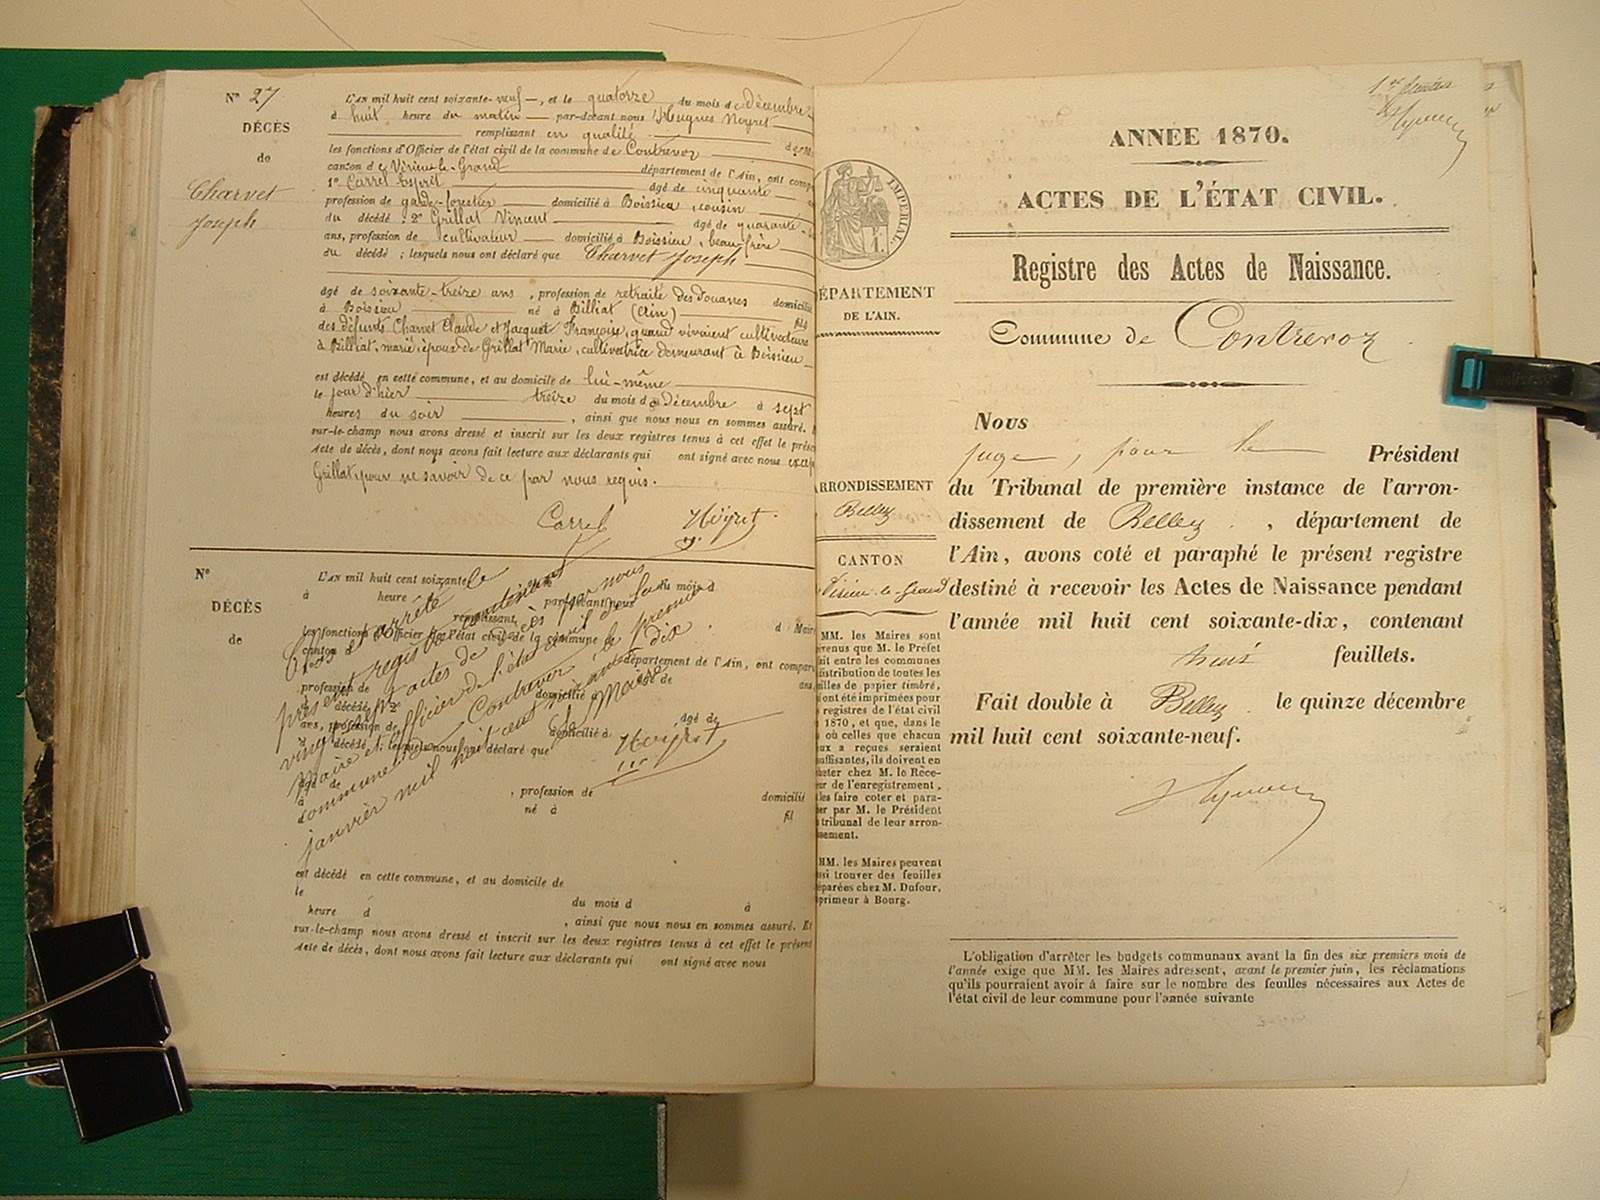 Nº 27
DÉCÈS
de
Charvet
Joseph
L'AN mil huit cent soixante-neuf, et le quatorze du mois de décembre
à huit heure du matin par-devant nous Hugues Neyret
remplissant en qualité
les fonctions d'Officier de l'état civil de la commune de Contrevoz
canton de Virieu-le-Grand département de l'Ain, ont comp
1º Carrel Esprit âgé de cinquante
profession de garde-forestier domicilié à Boissieu, cousin
du décédé 2º Grillat Vincent âgé de quarante-
ans, profession de cultivateur domicilié à Boissieu, beau-frère
du décédé ; lesquels nous ont déclaré que Charvet Joseph
âgé de soixante-treize ans, profession de retraité des douanes domicilié
à Boissieu né à Billiat (Ain) fils
des défunts Charvet Claude et Jacquet Françoise, quand vivaient cultivateurs
à Billiat, marié, époux de Grillat Marie, cultivatrice demeurant à Boissieu
est décédé en cette commune, et au domicile de lui-même
le jour d'hier treize du mois de décembre à sept
heures du soir, ainsi que nous nous en sommes assuré.
sur-le-champ nous avons dressé et inscrit sur les deux registres tenus à cet effet le prés
acte de décès, dont nous avons fait lecture aux déclarants qui ont signé avec nous excep
Grillat pour ne savoir de ce par nous requis.
Carrel Neyret
Nº
DÉCÈS
de
L'AN mil huit cent soixante
à heure du mois d
par-devant nous
remplissant
les fonctions d'Officier de l'état civil de la commune de d Mair
canton d département de l'Ain, ont compar
1º âgé de
profession de domicilié à ans,
d décédé 2º âgé de
ans, profession de domicilié à
d décédé ; lesquels nous ont déclaré que
âgé de , profession de domicilié
à né à fil
Clos et arrêté le
présent registre contenant
vingt sept actes de décès par nous
maire et officier de l'état civil de la
commune de Contrevoz le premier
janvier mil huit cent soixante dix
Le Maire
Neyret
est décédé en cette commune, et au domicile de
le du mois d à
heure d , ainsi que nous nous en sommes assuré. Et
sur-le-champ nous avons dressé et inscrit sur les deux registres tenus à cet effet le présent
acte de décès, dont nous avons fait lecture aux déclarants qui ont signé avec nous
IMPERIAL.
ÉPARTEMENT
DE L'AIN.
RRONDISSEMENT
Belley
CANTON
Virieu-le-Grand
MM. les Maires sont
evenus que M. le Préfet
ait entre les communes
distribution de toutes les
illes de papier timbré,
ont été imprimées pour
registres de l'état civil
1870, et que, dans le
où celles que chacun
ux a reçues seraient
uffisantes, ils doivent en
heter chez M. le Rece-
ur de l'enregistrement,
les faire coter et para-
er par M. le Président
tribunal de leur arron-
sement.
MM. les Maires peuvent
ssi trouver des feuilles
éparées chez M. Dufour,
primeur à Bourg.
ANNÉE 1870.
ACTES DE L'ÉTAT CIVIL.
Registre des Actes de Naissance.
Commune de Contrevoz
Nous
juge, pour le Président
du Tribunal de première instance de l'arron-
dissement de Belley, département de
l'Ain, avons coté et paraphé le présent registre
destiné à recevoir les Actes de Naissance pendant
l'année mil huit cent soixante-dix, contenant
feuillets.
Fait double à Belley le quinze décembre
mil huit cent soixante-neuf.
L'obligation d'arrêter les budgets communaux avant la fin des six premiers mois de
l'année exige que MM. les Maires adressent, avant le premier juin, les réclamations
qu'ils pourraient avoir à faire sur le nombre des feuilles nécessaires aux Actes de
l'état civil de leur commune pour l'année suivante